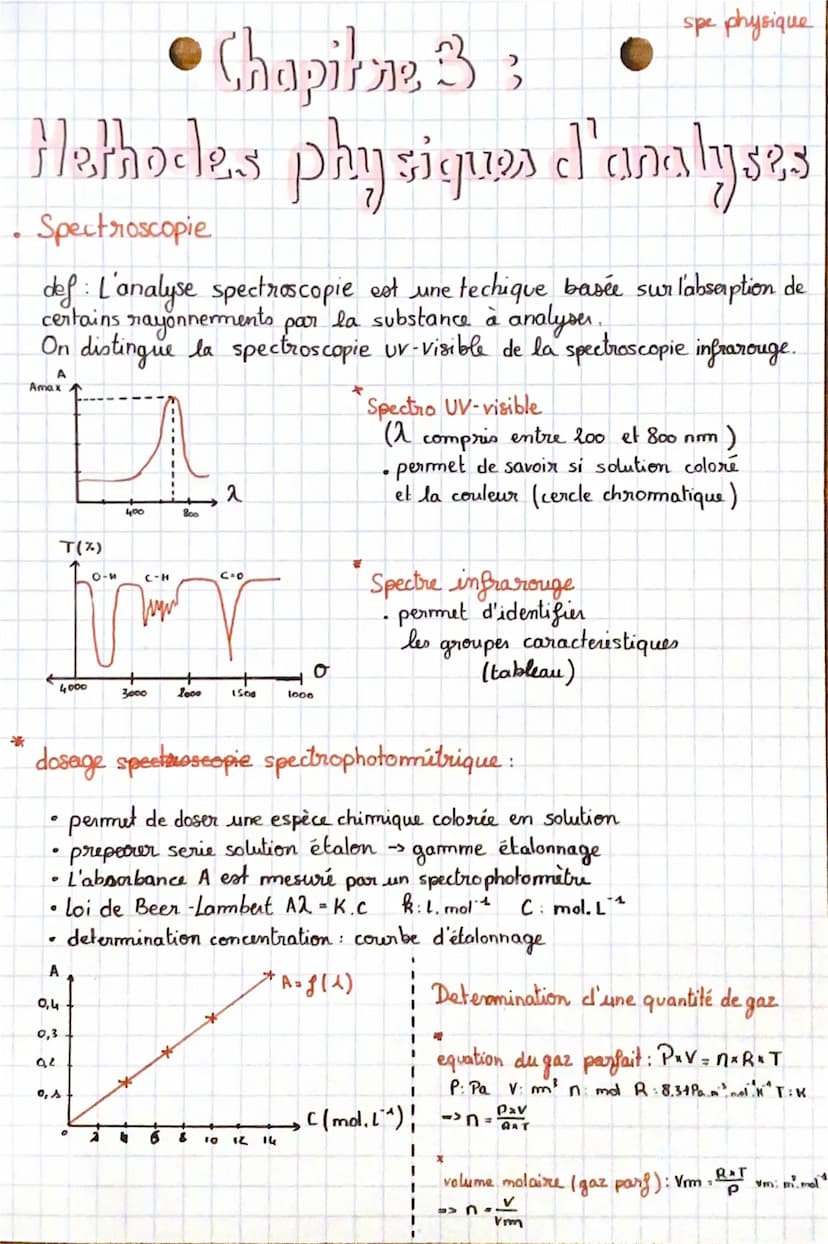 spe physique
Chapitre 3 :
Methodes physiques d'analyses
. Spectroscopie
def : L'analyse spectroscopie est une techique basée sur l'absorption de
certains rayonnerments par la substance à analyser.
On distingue la spectroscopie UV-visible de la spectroscopie infrarouge.
A
Amax
400
800
λ
* Spectro UV-visible
(λ compris entre 200 et 800 nm)
. permet de savoir si solution coloré
et la couleur (cercle chrommatique)
T(%)
O-H C-H C=O
σ
4000 3000 2000 1500 1000
* Spectre infrarouge
. permet d'identifier
les groupes caracteristiques
(tableau)
* dosage spectroscopie spectrophotométrique :
• permet de doser une espèce chimique colorée en solution
• preparer serie solution étalon → gamme étalonnage
• L'absorbance A est mesuré par un spectrophotomètre
• loi de Beer-Lambert Aλ = K.C k : L. mol⁻¹ C : mol. L⁻¹
• determination concentration : courbe d'étalonnage
A
A = f(λ)
0,4
0,3
0,2
0,1
0 2 4 6 8 10 12 14
C (mol.L⁻¹)
Determination d'une quantité de gaz
* equation du gaz parfait : P×V = n×R×T
P : Pa V : m³ n : mol R : 8,31Pa.m³.mol⁻¹.K⁻¹ T : K
=> n = P×V / R×T
* volume molaire (gaz parf) : Vm = R×T / P vm : m³.mol⁻¹
=> n = V / Vm